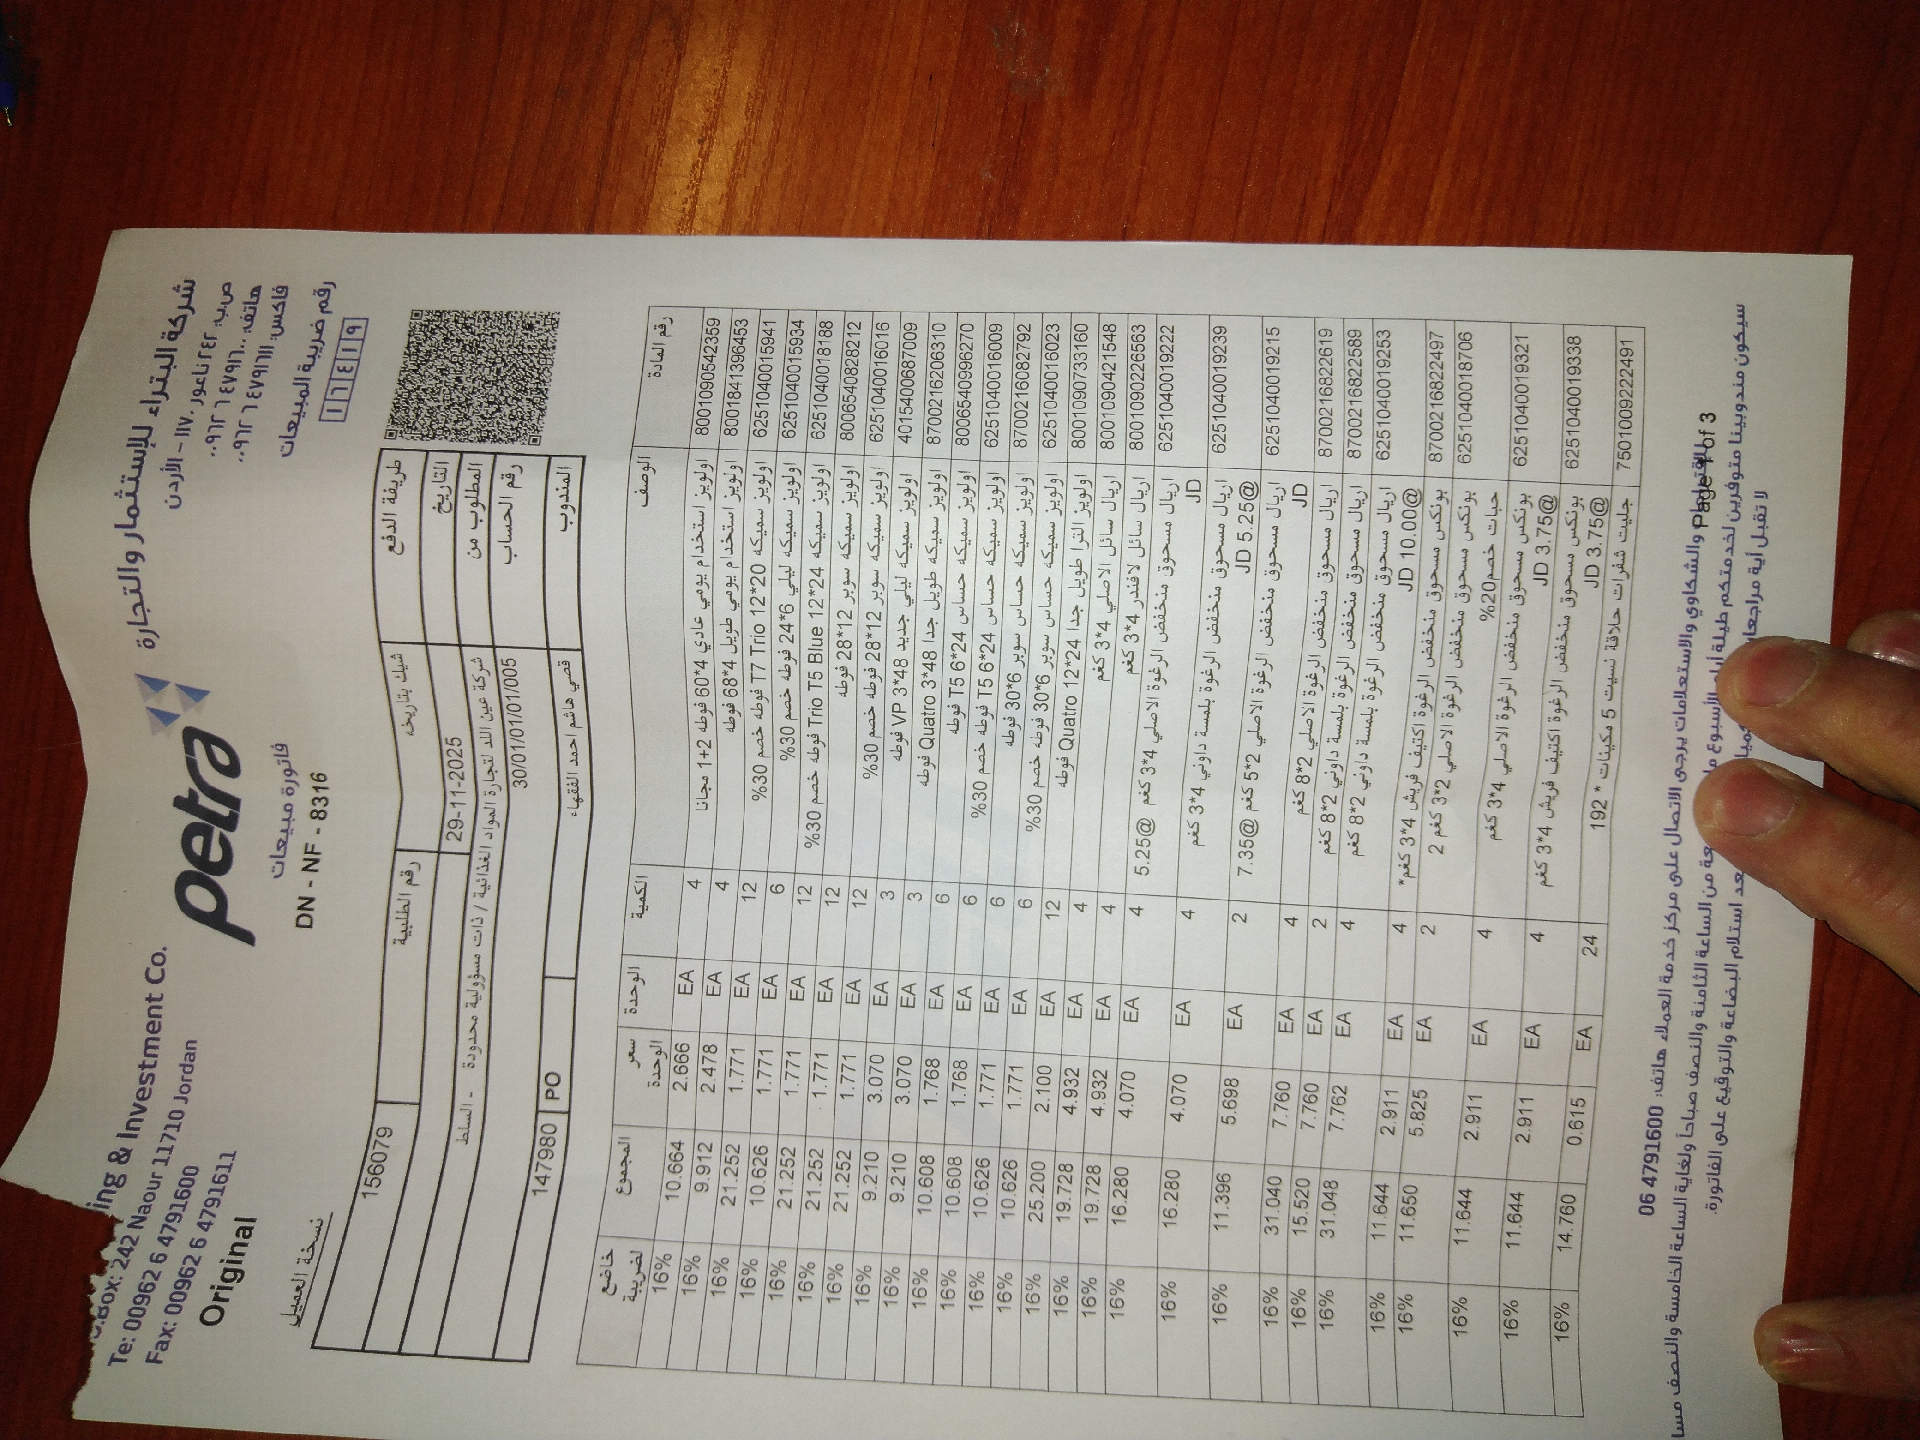 ing & Investment Co.
P.O.Box: 242 Naour 11710 Jordan
Te: 00962 6 4791600
Fax: 00962 6 4791611
Original
petra
شركة البتراء للإستثمار والتجارة
ص.ب: ٢٤٢ ناعور ١١٧١٠ - الأردن
هاتف: ٤٧٩١٦٠٠ ٦ ٠٠٩٦٢
فاكس: ٤٧٩١٦١١ ٦ ٠٠٩٦٢
رقم ضريبة المبيعات
١٦٤١٩
فاتورة مبيعات
DN - NF - 8316
نسخة العميل
طريقة الدفع شيك بتاريخه رقم الطلبية 156079
التاريخ 29-11-2025
المطلوب من شركة عين اللد لتجارة المواد الغذائية / ذات مسؤولية محدودة - السلط
رقم الحساب 30/01/01/01/005
المندوب قصي هاشم احمد الفقهاء PO 147980
رقم المادة الوصف الكمية الوحدة سعر الوحدة المجموع خاضع لضريبة
8001090542359 اولويز استخدام يومي عادي 4*60 فوطه 2+1 مجانا 4 EA 2.666 10.664 16%
8001841396453 اولويز استخدام يومي طويل 4*68 فوطه 4 EA 2.478 9.912 16%
6251040015941 اولويز سميكه T7 Trio 12*20 فوطه خصم 30% 12 EA 1.771 21.252 16%
6251040015934 اولويز سميكه ليلي 6*24 فوطه خصم 30% 6 EA 1.771 10.626 16%
6251040018188 اولويز سميكه Trio T5 Blue 12*24 فوطه خصم 30% 12 EA 1.771 21.252 16%
8006540828212 اولويز سميكه سوبر 12*28 فوطه 12 EA 1.771 21.252 16%
6251040016016 اولويز سميكه سوبر 12*28 فوطه خصم 30% 12 EA 1.771 21.252 16%
4015400687009 اولويز سميكه ليلي جديد VP 3*48 فوطه 3 EA 3.070 9.210 16%
8700216206310 اولويز سميكه طويل جدا Quatro 3*48 فوطه 3 EA 3.070 9.210 16%
8006540996270 اولويز سميكه حساس T5 6*24 فوطه 6 EA 1.768 10.608 16%
6251040016009 اولويز سميكه حساس T5 6*24 فوطه خصم 30% 6 EA 1.768 10.608 16%
8700216082792 اولويز سميكه حساس سوبر 6*30 فوطه 6 EA 1.771 10.626 16%
6251040016023 اولويز سميكه حساس سوبر 6*30 فوطه خصم 30% 6 EA 1.771 10.626 16%
8001090733160 اولويز الترا طويل جدا Quatro 12*24 فوطه 12 EA 2.100 25.200 16%
8001090421548 اريال سائل الاصلي 4*3 كغم 4 EA 4.932 19.728 16%
8001090226563 اريال سائل لافندر 4*3 كغم 4 EA 4.932 19.728 16%
6251040019222 اريال مسحوق منخفض الرغوة الاصلي 4*3 كغم @5.25 4 EA 4.070 16.280 16%
JD
6251040019239 اريال مسحوق منخفض الرغوة بلمسة داوني 4*3 كغم 4 EA 4.070 16.280 16%
@5.25 JD
6251040019215 اريال مسحوق منخفض الرغوة الاصلي 2*5 كغم @7.35 2 EA 5.698 11.396 16%
JD
8700216822619 اريال مسحوق منخفض الرغوة الاصلي 2*8 كغم 4 EA 7.760 31.040 16%
8700216822589 اريال مسحوق منخفض الرغوة بلمسة داوني 2*8 كغم 2 EA 7.760 15.520 16%
6251040019253 اريال مسحوق منخفض الرغوة بلمسة داوني 2*8 كغم 4 EA 7.762 31.048 16%
@10.00 JD
8700216822497 بونكس مسحوق منخفض الرغوة اكتيف فريش 4*3 كغم* 4 EA 2.911 11.644 16%
6251040018706 بونكس مسحوق منخفض الرغوة الاصلي 2*3 كغم 2 2 EA 5.825 11.650 16%
حبات خصم20%
6251040019321 بونكس مسحوق منخفض الرغوة الاصلي 4*3 كغم 4 EA 2.911 11.644 16%
@3.75 JD
6251040019338 بونكس مسحوق منخفض الرغوة اكتيف فريش 4*3 كغم 4 EA 2.911 11.644 16%
@3.75 JD
7501009222491 جليت شفرات حلاقة نسيت 5 مكينات * 192 24 EA 0.615 14.760 16%
والشكاوي والاستعلامات يرجى الاتصال على مركز خدمة العملاء هاتف: 06 4791600
Page 1 of 3
سيكون مندوبينا متوفرين لخدمتكم طيلة أيام الأسبوع من الساعة الثامنة والنصف صباحاً ولغاية الساعة الخامسة والنصف مسا
لا تقبل أية مراجعا بعد استلام البضاعة والتوقيع على الفاتورة.